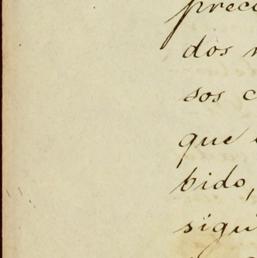 prec
dos
sos c
que
bido,
sigui